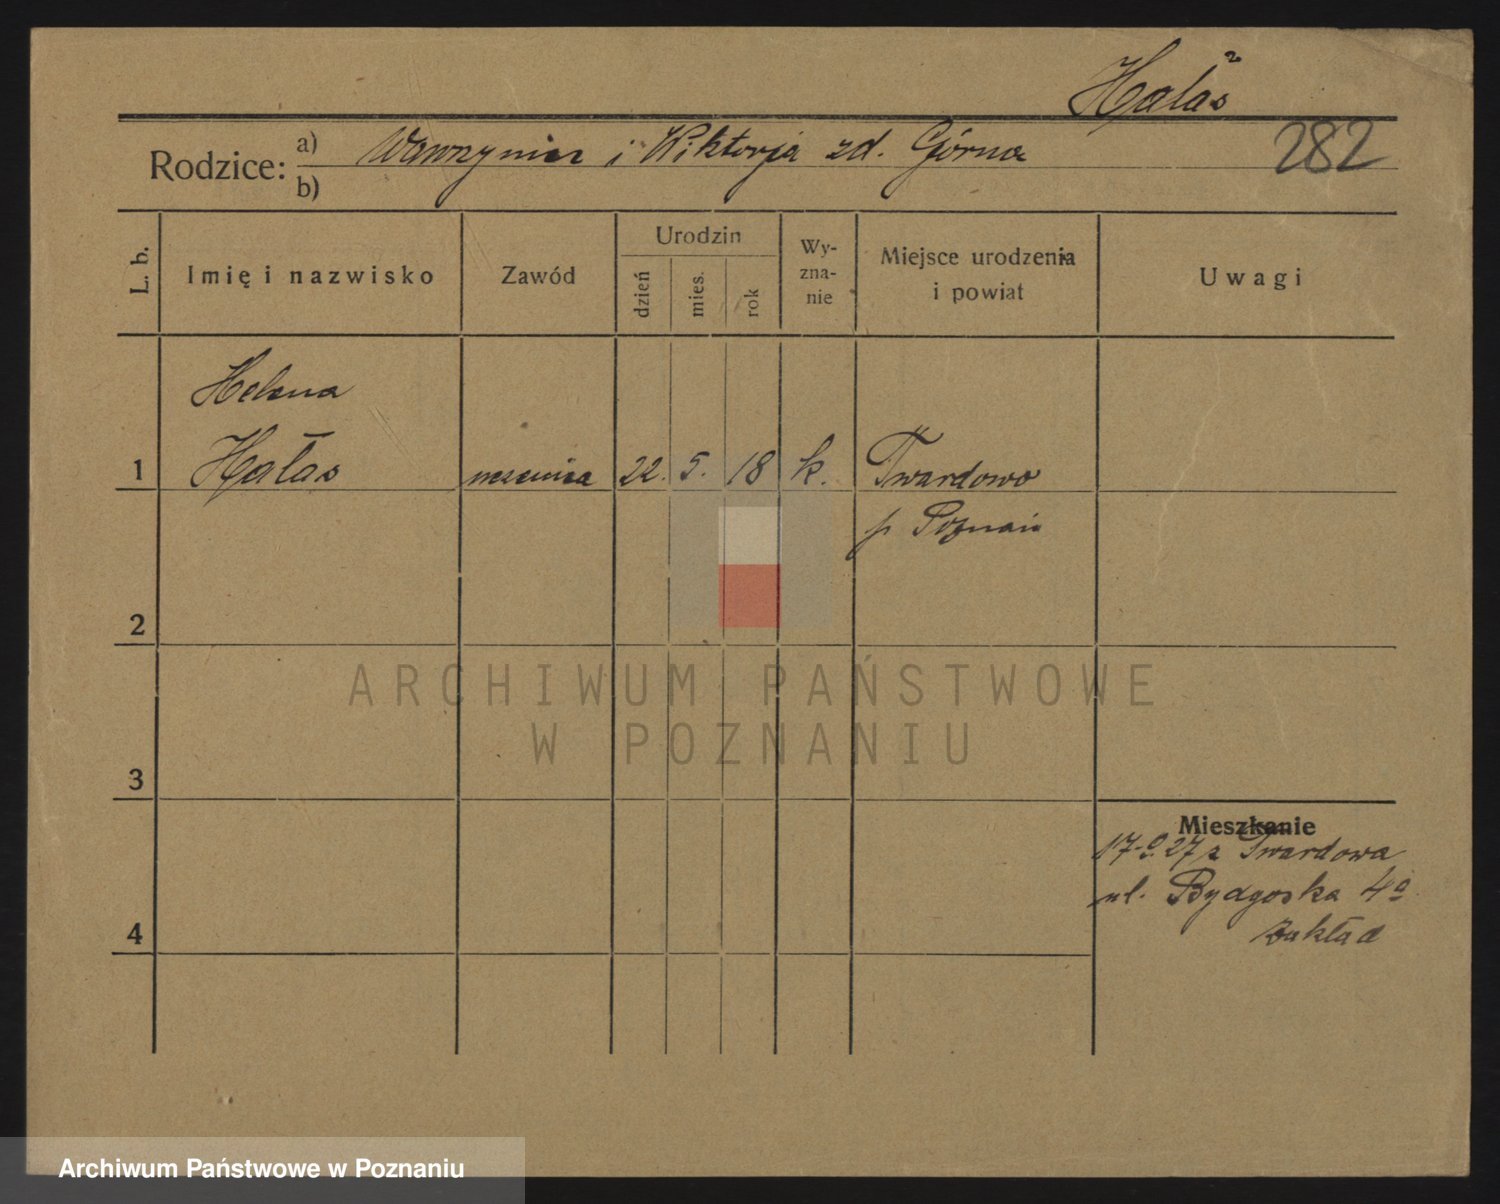 Hałas
2
282
Rodzice: a) Wawrzyniec i Wiktorja zd. Górna
b)
L. b.
Imię i nazwisko
Zawód
Urodzin
dzień
mies.
rok
Wy-
zna-
nie
Miejsce urodzenia
i powiat
Uwagi
Helena
1 Hałas uczenica 22. 5. 18 k. Twardowo
p Poznań
2
3
4
Mieszkanie
27 z Twardowa
ul. Bydgoska 4a
zakład
ARCHIWUM PAŃSTWOWE
W POZNANIU
Archiwum Państwowe w Poznaniu